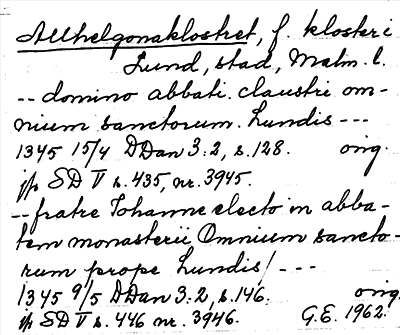 Allhelgonaklostret, f. kloster i
Lund, stad, Malm. l.
-- domino abbati. claustri om-
nium sanctorum. Lundis ---
1345 15/4 DDan 3:2, s. 128. orig.
jfr SD V s. 435, nr. 3945.
-- fratre Johanne electo in abba-
tem monasterii Omnium sancto-
rum prope Lundis/ ---
1345 9/5 DDan 3:2, s. 146. orig.
jfr SD V s. 446 nr. 3946. G.E. 1962.